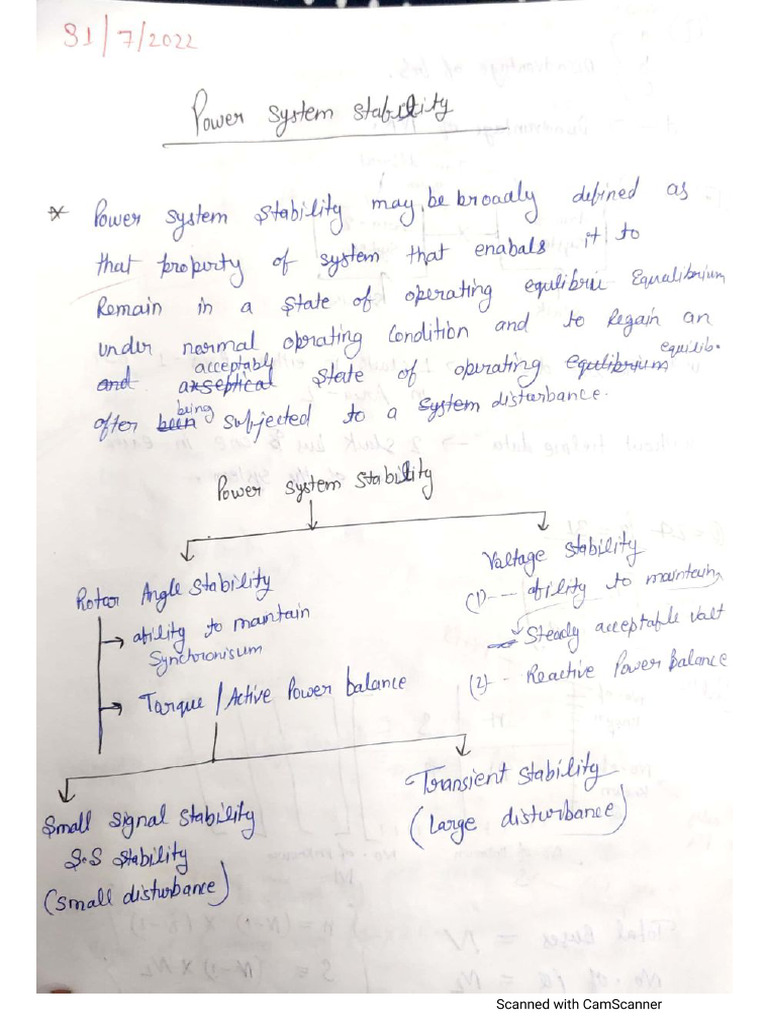 31/7/2022
Power system stability
* Power system stability may be broadly defined as
that property of system that enabals it to
Remain in a state of operating equlibrii Equalibrium
under normal operating Condition and to Regain an
and axseptical acceptably state of operating equtibrium equilib.
after been being subjected to a system disturbance.
Power system stability
Rotor Angle stability
→ ability to maintain
Synchronisum
→ Tarque / Active Power balance
Voltage stability
(1) -- ability to maintaing
Steady acceptable Valt
(2) -- Reactive Power Balance
Small signal stability
S.S stability
(small disturbance)
Transient stability
(Large disturbance)
Scanned with CamScanner